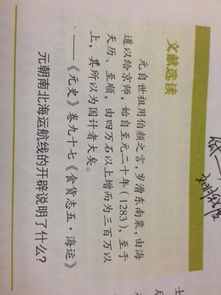 文献选读
元自世祖用伯颜之言，岁漕东南粟，由海
道以给京师，始自至元二十年（1283），至于
天历、至顺，由四万石以上增而为三百万以
上，其所以为国计者大矣。
——《元史》卷九十七《食货志五·海运》
元朝南北海运航线的开辟说明了什么？